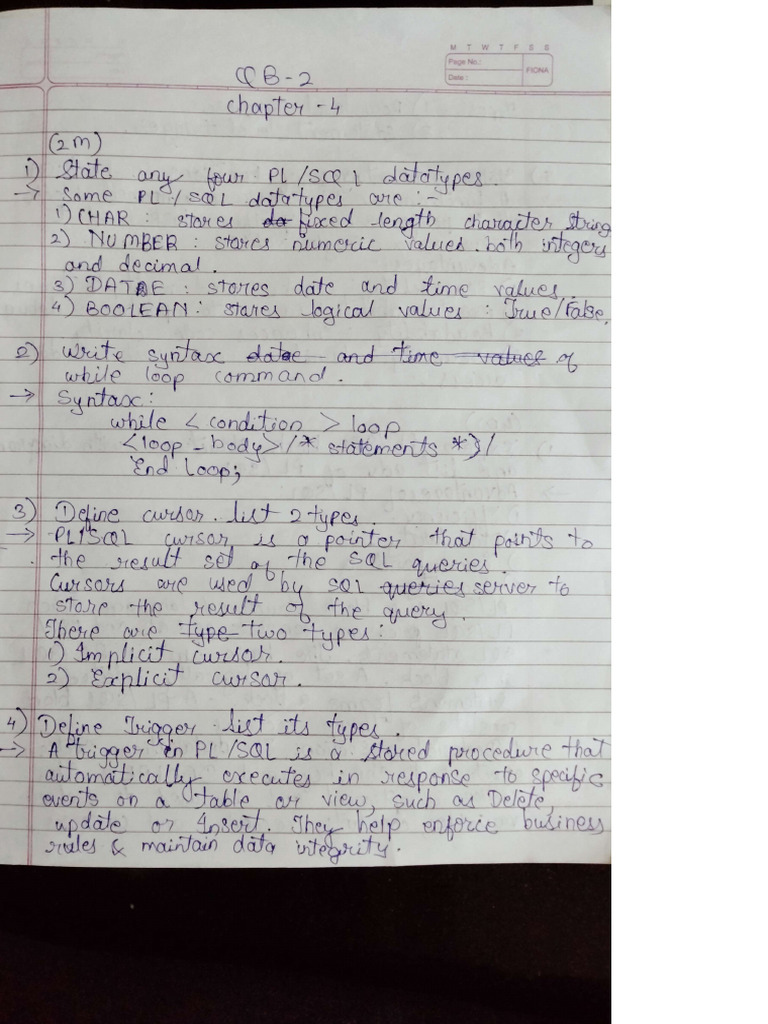 M T W T F S S
Page No.:
Date:
FIONA
QB-2
Chapter - 4
(2M)
1) State any four PL/SQL datatypes.
→ Some PL/SQL datatypes are :-
1) CHAR : stores fixed length character string
2) NUMBER : stores numeric values both integers
and decimal.
3) DATE : stores date and time values.
4) BOOLEAN : stores logical values : True/False.
2) Write syntax date and time values of
while loop command.
→ Syntax:
while <condition> loop
<loop-body> /* statements */
End loop;
3) Define cursor. list 2 types.
→ PL/SQL cursor is a pointer that points to
the result set of the SQL queries.
Cursors are used by SQL queries server to
store the result of the query.
There are type two types:
1) Implicit cursor.
2) Explicit cursor.
4) Define Trigger. list its types.
→ A trigger in PL/SQL is a stored procedure that
automatically executes in response to specific
events on a table or view, such as Delete,
update or Insert. They help enforce business
rules & maintain data integrity.